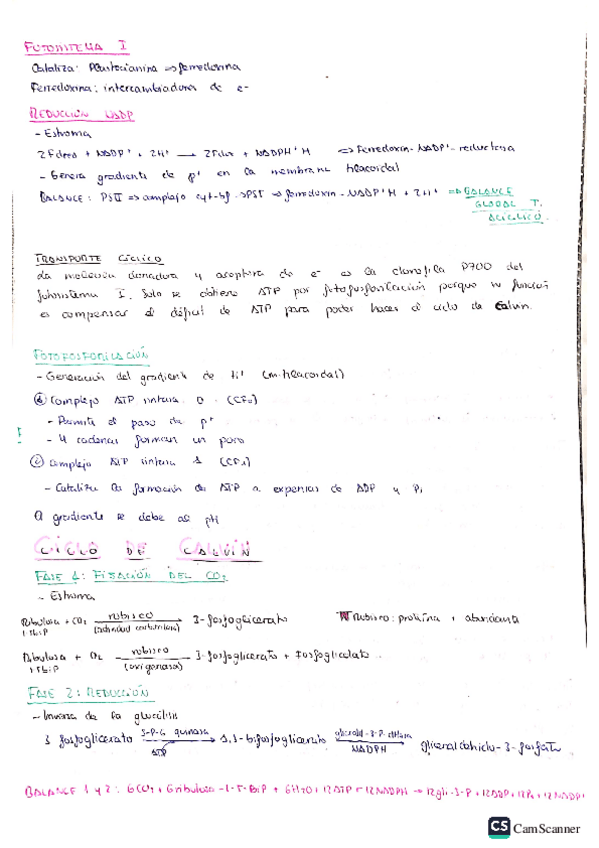 FOTOSISTEMA I
Cataliza: Plastocianina => ferredoxina
Ferredoxina: intercambiadora de e-
REDUCCIÓN NADP
- Estroma
+ NADP+ + 2H+ → + NADPH+H => Ferredoxin-NADP+-reductasa
- Genera gradiente de p+ en la membrana tilacoidal
BALANCE: PSII => complejo cyt-bf -> PSI => ferredoxin - NADP+H + 2H+ => BALANCE
GLOBAL T.
ACÍCLICO.
TRANSPORTE CÍCLICO
La molécula donadora y aceptora de e- es la clorofila P700 del
fotosistema I. Solo se obtiene ATP por fotofosforilación porque su función
es compensar el déficit de ATP para poder hacer el ciclo de Calvin.
FOTOFOSFORILACIÓN
- Generación del gradiente de H+ (m. tilacoidal)
Complejo ATP sintasa 0 - (CF0)
- Permite el paso de p+
- 4 cadenas forman un poro
Complejo ATP sintasa 1 (CF1)
- Cataliza la formación de ATP a expensas de ADP y Pi
El gradiente se debe al pH
CICLO DE CALVIN
FASE 1: FIJACIÓN DEL CO2
- Estroma
Ribulosa + CO2 rubisco 3-fosfoglicerato Rubisco: proteína + abundante
1-5biP (actividad carboxilasa)
Ribulosa + O2 rubisco 3-fosfoglicerato + Fosfoglicolato
1-5biP (oxigenasa)
FASE 2: REDUCCIÓN
- Inversa de la glucólisis
3 fosfoglicerato 3-P-G quinasa 1,3-bifosfoglicerato gliceraldehido-3-fosfato
ATP NADPH
BALANCE 1 y 2: 6CO2 + 6ribulosa-1-5-BiP + 6H2O + 12ATP + 12NADPH → 12gli-3-P + 12ADP + 12Pi + 12NADP+
CS CamScanner